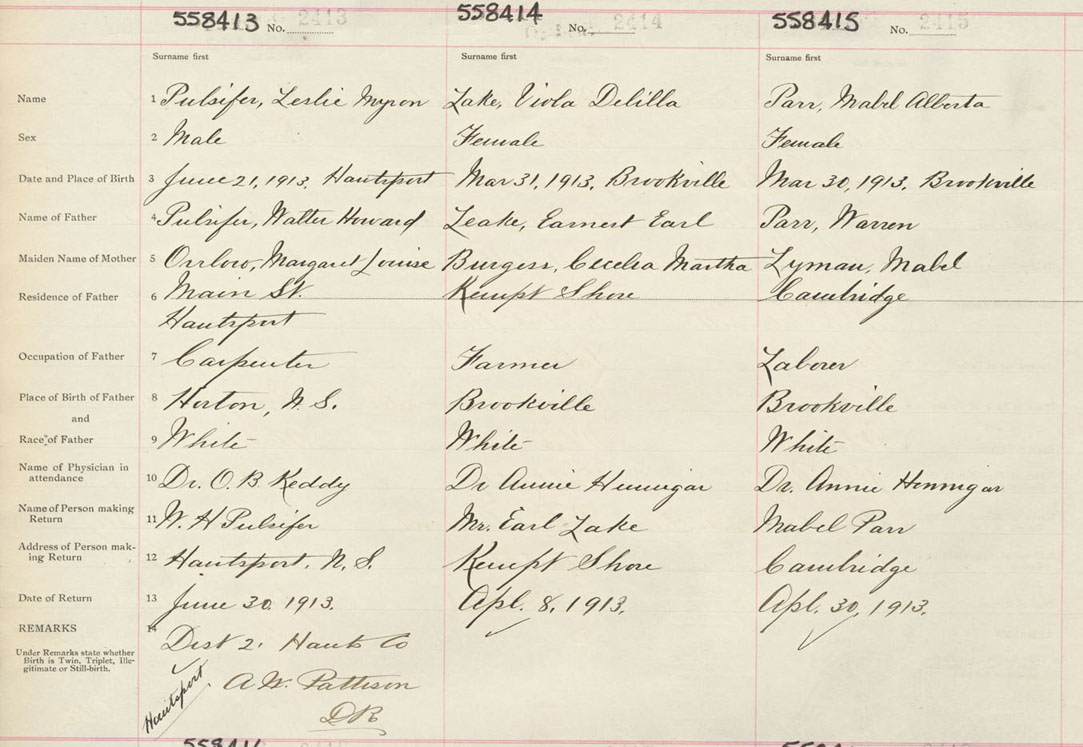 558413 No. 2413 558414 No. 2414 558415 No. 2415
Surname first Surname first Surname first
Name 1 Pulsifer, Leslie Myron Lake, Viola Delilla Parr, Mabel Alberta
Sex 2 Male Female Female
Date and Place of Birth 3 June 21, 1913, Hantsport Mar 31, 1913, Brookville Mar 30, 1913, Brookville
Name of Father 4 Pulsifer, Walter Howard Leake, Earnest Earl Parr, Warren
Maiden Name of Mother 5 Margaret Louise Burgess, Cecelia Martha Lyman, Mabel
Residence of Father 6 Main St. Kempt Shore Cambridge
Hantsport
Occupation of Father 7 Carpenter Farmer Laborer
Place of Birth of Father 8 Horton, N.S. Brookville Brookville
and
Race of Father 9 White White White
Name of Physician in
attendance 10 Dr. O. B. Keddy Dr Annie Hennigar Dr. Annie Hennigar
Name of Person making
Return 11 W. H Pulsifer Mr. Earl Lake Mabel Parr
Address of Person mak-
ing Return 12 Hantsport, N. S. Kempt Shore Cambridge
Date of Return 13 June 30, 1913. Apl. 8, 1913. Apl. 30, 1913.
REMARKS 14 Dist 2. Hants Co
Under Remarks state whether
Birth is Twin, Triplet, Ille-
gitimate or Still-birth.
Hantsport A. W. Pattison
DR